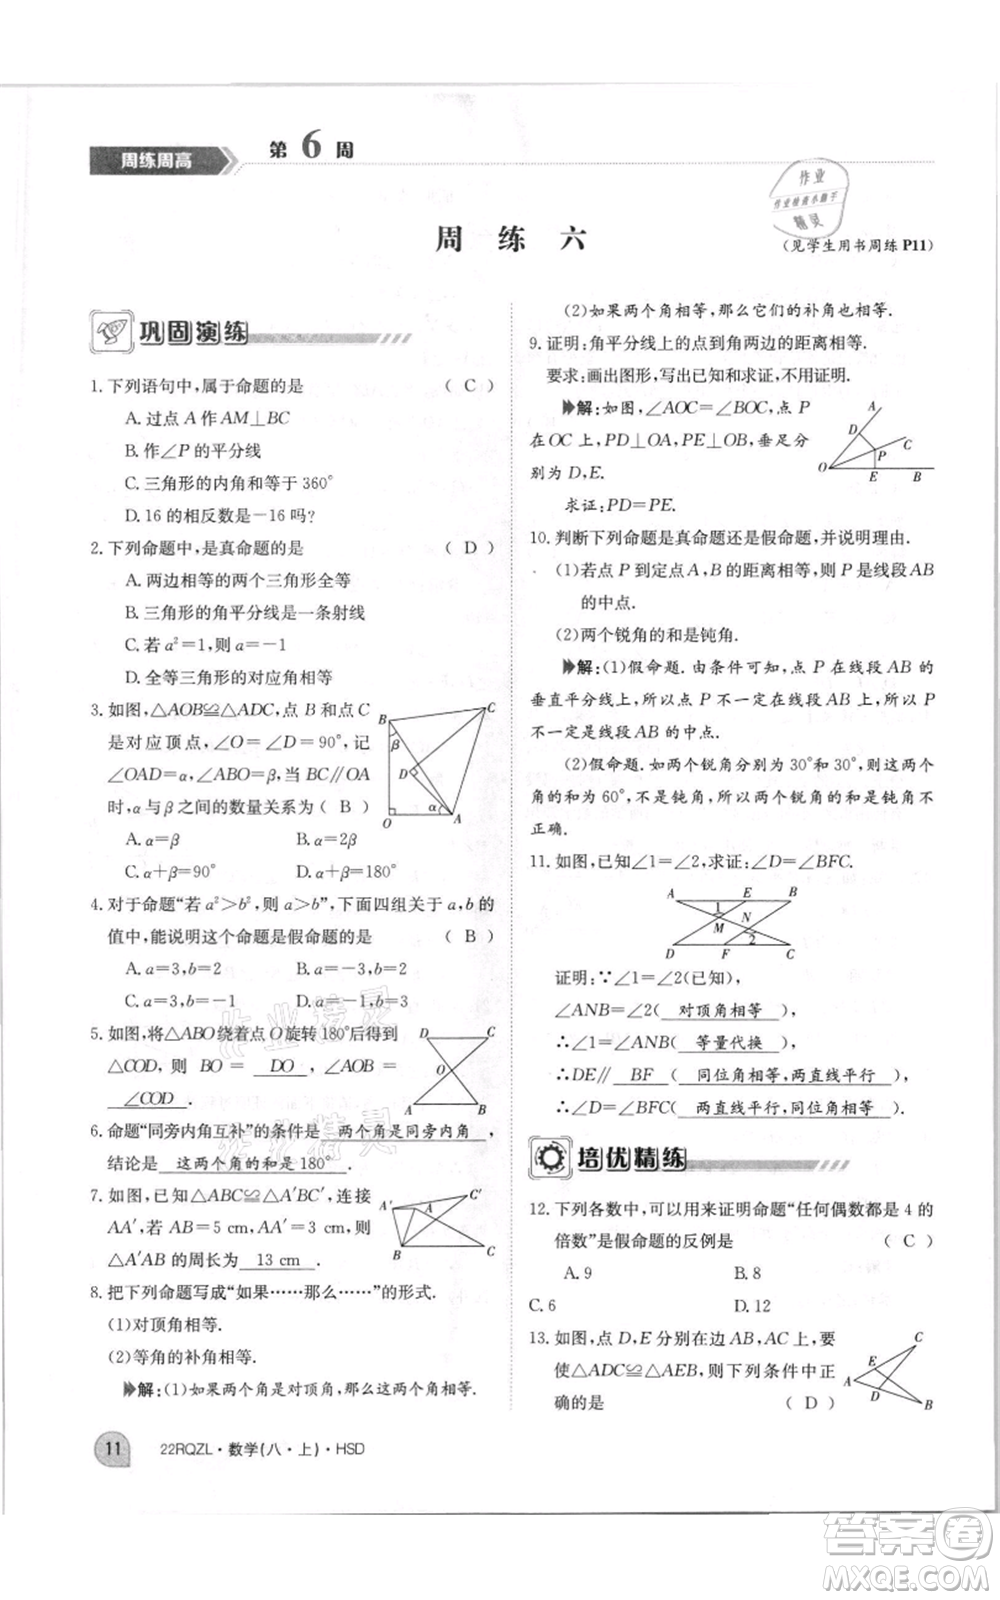 周练周高
第 6 周
作业
作业检查小助手
精灵
周 练 六
(见学生用书周练 P11)
巩固演练
1. 下列语句中,属于命题的是 ( C )
A. 过点 A 作 AM⊥BC
B. 作∠P 的平分线
C. 三角形的内角和等于 360°
D. 16 的相反数是-16 吗?
2. 下列命题中,是真命题的是 ( D )
A. 两边相等的两个三角形全等
B. 三角形的角平分线是一条射线
C. 若 a²=1,则 a=-1
D. 全等三角形的对应角相等
3. 如图,△AOB≌△ADC,点 B 和点C
是对应顶点,∠O=∠D=90°,记
∠OAD=α,∠ABO=β,当 BC∥OA
时,α 与β 之间的数量关系为 ( B )
B C β D α O A
A. α=β B. α=2β
C. α+β=90° D. α+β=180°
4. 对于命题“若 a²>b²,则 a>b”,下面四组关于 a,b 的
值中,能说明这个命题是假命题的是 ( B )
A. a=3,b=2 B. a=-3,b=2
C. a=3,b=-1 D. a=-1,b=3
5. 如图,将△ABO 绕着点 O 旋转 180°后得到
△COD,则 BO= DO ,∠ABO=
∠COD .
D C O A B
6. 命题“同旁内角互补”的条件是 两个角是同旁内角 ,
结论是 这两个角的和是180° .
7. 如图,△ABC≌△A′BC′,连接
AA′,若 AB=5 cm,AA′=3 cm,则
△A′AB 的周长为 13 cm .
A′ A C′ B C
8. 把下列命题写成“如果……那么……”的形式.
(1)对顶角相等.
(2)等角的补角相等.
解:(1)如果两个角是对顶角,那么这两个角相等.
11
22RQZL·数学(八·上)·HSD
(2)如果两个角相等,那么它们的补角也相等.
9. 证明:角平分线上的点到角两边的距离相等.
要求:画出图形,写出已知和求证,不用证明.
解:如图,∠AOC=∠BOC,点 P
在 OC 上,PD⊥OA,PE⊥OB,垂足分
别为 D,E.
求证:PD=PE.
A D C P O E B
10. 判断下列命题是真命题还是假命题,并说明理由.
(1)若点 P 到定点 A,B 的距离相等,则点 P 是线段 AB
的中点.
(2)两个锐角的和是钝角.
解:(1)假命题. 由条件可知,点 P 在线段 AB 的
垂直平分线上,所以点 P 不一定在线段 AB 上,所以 P
不一定是线段 AB 的中点.
(2)假命题. 如两个锐角分别为 30°和 30°,则这两个
角的和为 60°,不是钝角,所以两个锐角的和是钝角不
正确.
11. 如图,已知∠1=∠2,求证:∠D=∠BFC.
A E B 1 M N 2 D F C
证明:∵∠1=∠2(已知),
∠ANB=∠2( 对顶角相等 ),
∴∠1=∠ANB( 等量代换 ).
∴DE∥ BF ( 同位角相等,两直线平行 ).
∴∠D=∠BFC( 两直线平行,同位角相等 ).
培优精练
12. 下列各数中,可以用来证明命题“任何偶数都是 4 的
倍数”是假命题的反例是 ( C )
A. 9 B. 8
C. 6 D. 12
13. 如图,点 D,E 分别在边 AB,AC 上,要
使△ADC≌△AEB,则下列条件中正
确的是 ( D )
C E A D B
作业精灵
答案卷